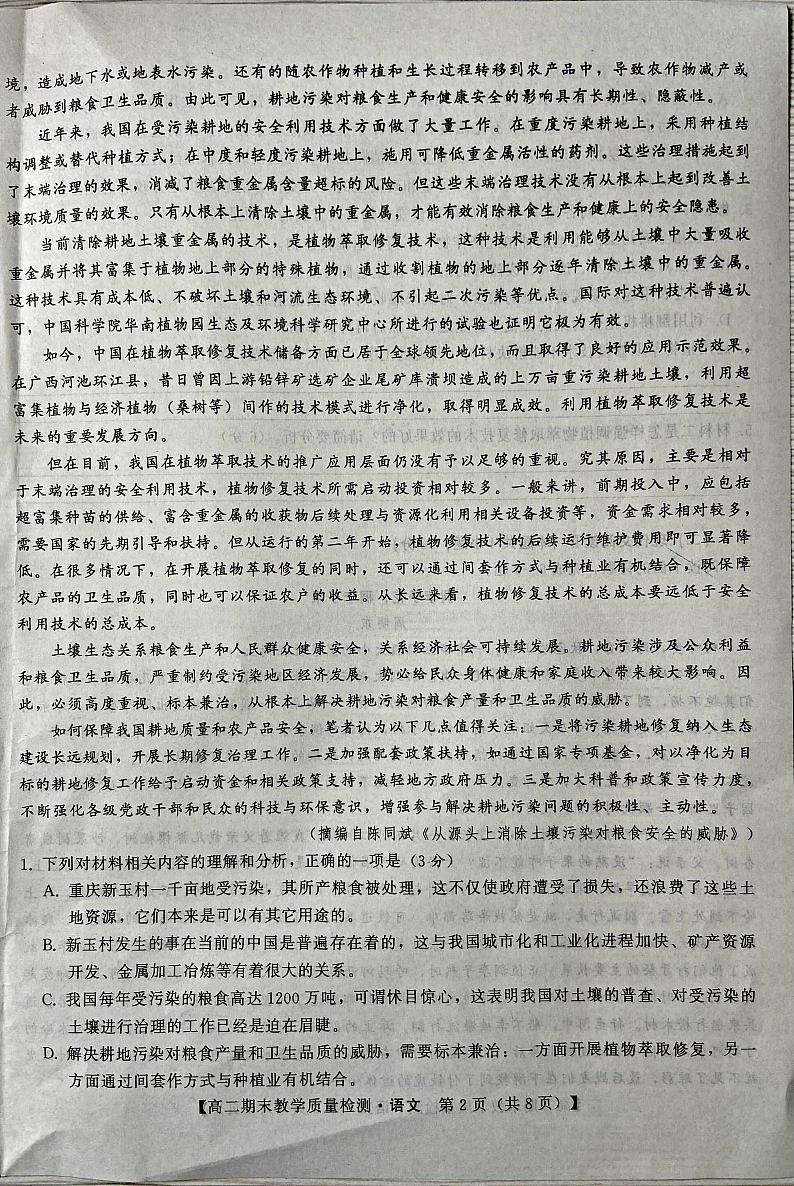 境，造成地下水或地表水污染。还有的随农作物种植和生长过程转移到农产品中，导致农作物减产或
者威胁到粮食卫生品质。由此可见，耕地污染对粮食生产和健康安全的影响具有长期性、隐蔽性。
近年来，我国在受污染耕地的安全利用技术方面做了大量工作。在重度污染耕地上，采用种植结
构调整或替代种植方式；在中度和轻度污染耕地上，施用可降低重金属活性的药剂。这些治理措施起到
了末端治理的效果，消减了粮食重金属含量超标的风险。但这些末端治理技术没有从根本上起到改善土
壤环境质量的效果。只有从根本上清除土壤中的重金属，才能有效消除粮食生产和健康上的安全隐患。
当前清除耕地土壤重金属的技术，是植物萃取修复技术，这种技术是利用能够从土壤中大量吸收
重金属并将其富集于植物地上部分的特殊植物，通过收割植物的地上部分逐年清除土壤中的重金属。
这种技术具有成本低、不破坏土壤和河流生态环境、不引起二次污染等优点。国际对这种技术普遍认
可，中国科学院华南植物园生态及环境科学研究中心所进行的试验也证明它极为有效。
如今，中国在植物萃取修复技术储备方面已居于全球领先地位，而且取得了良好的应用示范效果。
在广西河池环江县，昔日曾因上游铅锌矿选矿企业尾矿库溃坝造成的上万亩重污染耕地土壤，利用超
富集植物与经济植物（桑树等）间作的技术模式进行净化，取得明显成效。利用植物萃取修复技术是
未来的重要发展方向。
但在目前，我国在植物萃取技术的推广应用层面仍没有予以足够的重视。究其原因，主要是相对
于末端治理的安全利用技术，植物修复技术所需启动投资相对较多。一般来讲，前期投入中，应包括
超富集种苗的供给、富含重金属的收获物后续处理与资源化利用相关设备投资等，资金需求相对较多，
需要国家的先期引导和扶持。但从运行的第二年开始，植物修复技术的后续运行维护费用即可显著降
低。在很多情况下，在开展植物萃取修复的同时，还可以通过间套作方式与种植业有机结合，既保障
农产品的卫生品质，同时也可以保证农户的收益。从长远来看，植物修复技术的总成本要远低于安全
利用技术的总成本。
土壤生态关系粮食生产和人民群众健康安全，关系经济社会可持续发展。耕地污染涉及公众利益
和粮食卫生品质，严重制约受污染地区经济发展，势必给民众身体健康和家庭收入带来较大影响。因
此，必须高度重视、标本兼治，从根本上解决耕地污染对粮食产量和卫生品质的威胁。
如何保障我国耕地质量和农产品安全，笔者认为以下几点值得关注：一是将污染耕地修复纳入生态
建设长远规划，开展长期修复治理工作。二是加强配套政策扶持，如通过国家专项基金，对以净化为目
标的耕地修复工作给予启动资金和相关政策支持，减轻地方政府压力。三是加大科普和政策宣传力度，
不断强化各级党政干部和民众的科技与环保意识，增强参与解决耕地污染问题的积极性、主动性。
（摘编自陈同斌《从源头上消除土壤污染对粮食安全的威胁》）
1. 下列对材料相关内容的理解和分析，正确的一项是（3分）
A. 重庆新玉村一千亩地受污染，其所产粮食被处理，这不仅使政府遭受了损失，还浪费了这些土
地资源，它们本来是可以有其它用途的。
B. 新玉村发生的事在当前的中国是普遍存在着的，这与我国城市化和工业化进程加快、矿产资源
开发、金属加工冶炼等有着很大的关系。
C. 我国每年受污染的粮食高达1200万吨，可谓怵目惊心，这表明我国对土壤的普查、对受污染的
土壤进行治理的工作已经是迫在眉睫。
D. 解决耕地污染对粮食产量和卫生品质的威胁，需要标本兼治：一方面开展植物萃取修复，另一
方面通过间套作方式与种植业有机结合。
【高二期末教学质量检测·语文 第2页（共8页）】